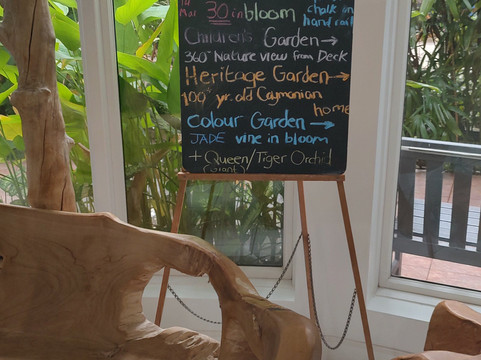 30 in bloom
chalk on
hand rail
Children's Garden →
360° Nature view from Deck
Heritage Garden →
100+ yr. old Caymanian
home
Colour Garden →
JADE vine in bloom
+ Queen/Tiger Orchid
(Giant)